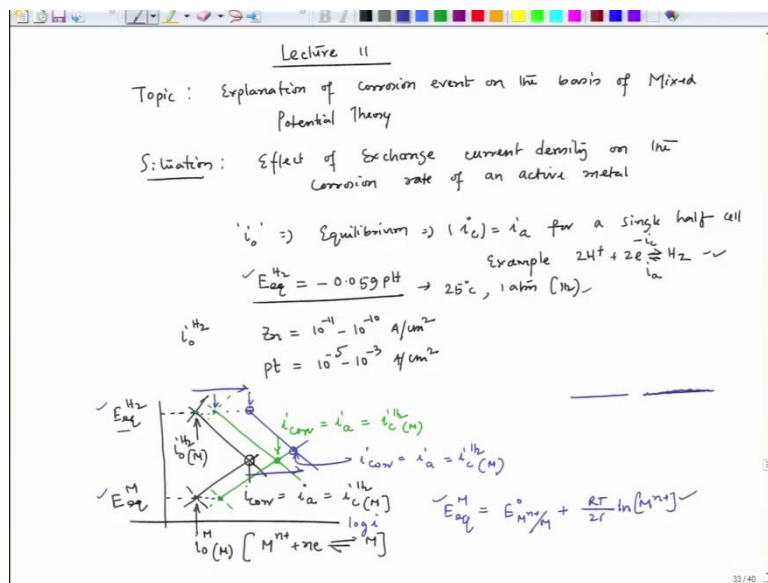 Lecture 11
Topic : Explanation of corrosion event on the basis of Mixed
Potential Theory
Situation : Effect of Exchange current density on the
corrosion rate of an active metal
'i₀' ⇒ Equilibrium ⇒ |i_c| = i_a for a single half cell
Example 2H⁺ + 2e ⇌ H₂
-i_c
i_a
E_eq^H₂ = -0.059 pH → 25°C, 1 atm (H₂)
i₀^H₂ Zn = 10⁻¹¹ - 10⁻¹⁰ A/cm²
Pt = 10⁻⁵ - 10⁻³ A/cm²
E_eq^H₂
i₀^H₂(M)
i_corr = i_a = i_c^H₂(M)
i_corr = i_a = i_c^H₂(M)
E_eq^M
i_corr = i_a = i_c^H₂[M]
log i
E_eq^M = E°_Mⁿ⁺/M + RT/2F ln[Mⁿ⁺]
i₀^M(M) [Mⁿ⁺ + ne ⇌ M]
33/40